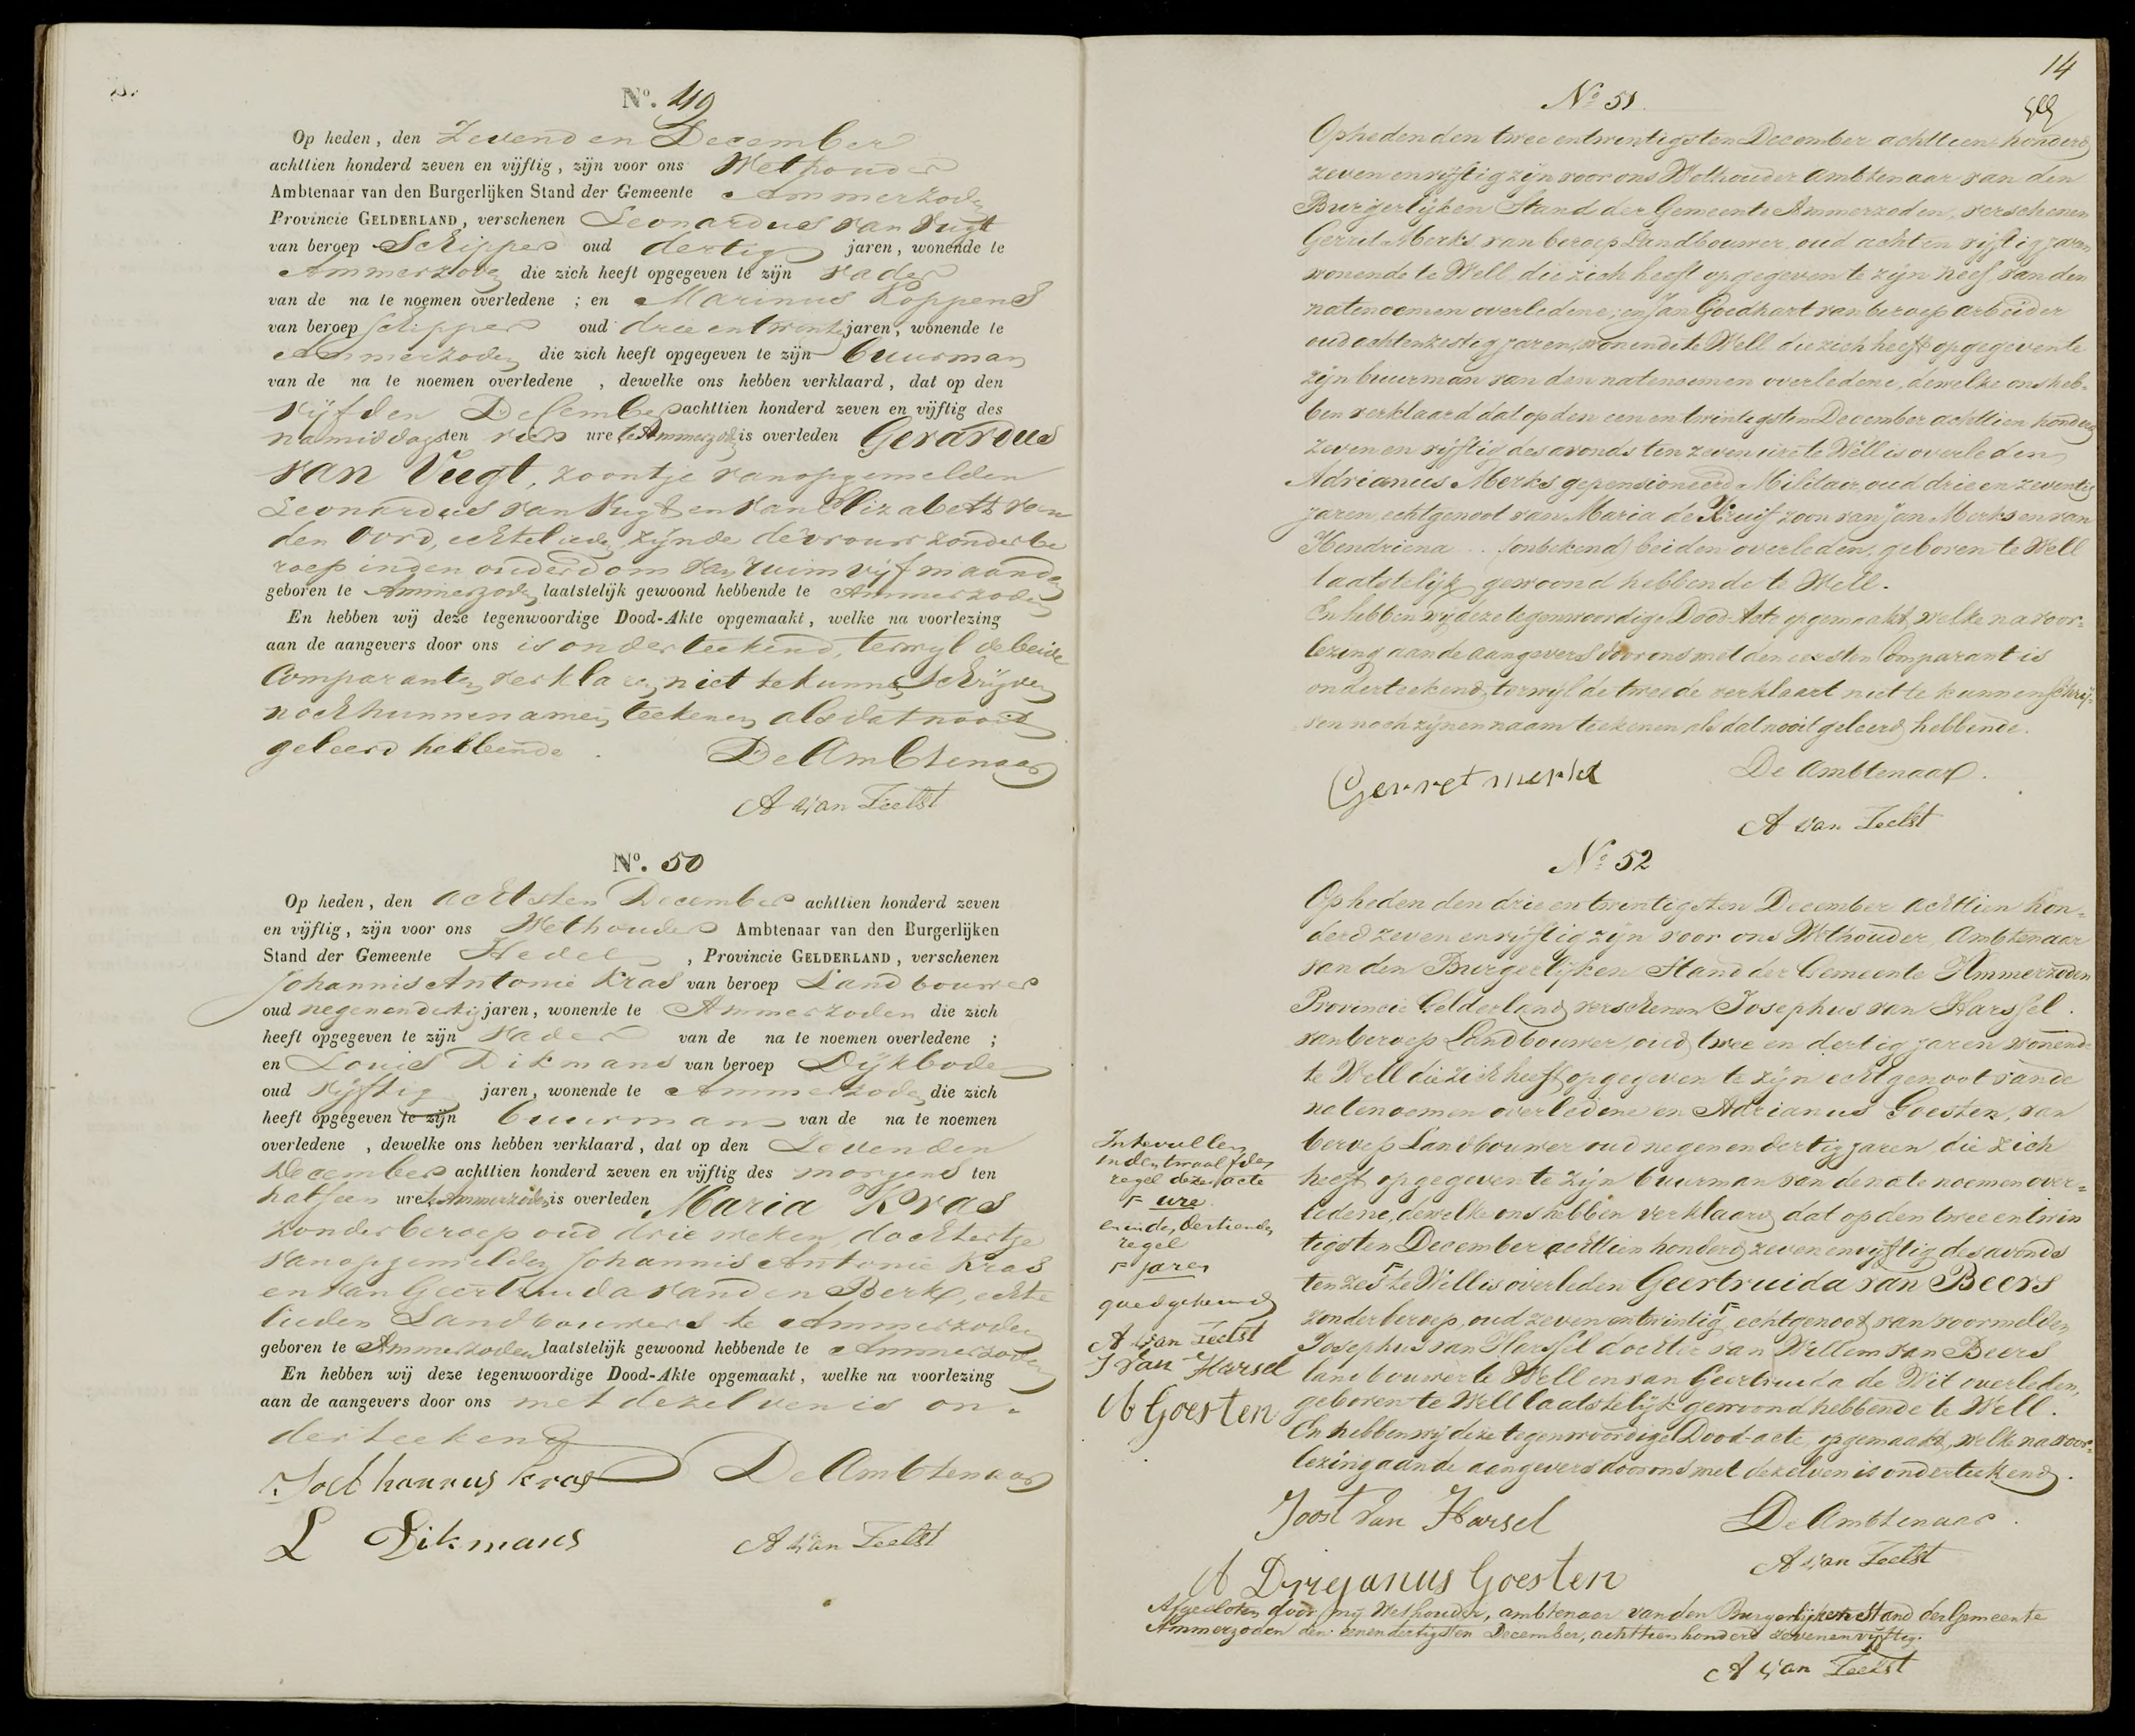 No. 49
Op heden, den Zevenden December
achttien honderd zeven en vijftig, zijn voor ons Wethouder
Ambtenaar van den Burgerlijken Stand der Gemeente Ammerzoden
Provincie GELDERLAND, verschenen Leonardus van Vugt
van beroep Schipper oud dertig jaren, wonende te
Ammerzoden die zich heeft opgegeven te zijn vader
van de na te noemen overledene ; en Marinus Koppens
van beroep schipper oud drie entwintig jaren, wonende te
Ammerzoden die zich heeft opgegeven te zijn buurman
van de na te noemen overledene , dewelke ons hebben verklaard, dat op den
vijfden December achttien honderd zeven en vijftig des
namiddags ten vier ure te Ammerzoden is overleden Gerardus
van Vugt, zoontje van opgemelden
Leonardus van Vugt en van Elizabeth van
den Oord, echtelieden, zijnde de vrouw zonder be
roep in den ouderdom van ruim vijf maanden
geboren te Ammerzoden laatstelijk gewoond hebbende te Ammerzoden
En hebben wij deze tegenwoordige Dood-Akte opgemaakt, welke na voorlezing
aan de aangevers door ons is onderteekend, terwyl de beide
Comparanten verklaren niet te kunnen schrijven
noch hunne namen teekenen als dat nooit
geleerd hebbende. De Ambtenaar
A van Zeelst
No. 50
Op heden, den achtsten December achttien honderd zeven
en vijftig, zijn voor ons Wethouder Ambtenaar van den Burgerlijken
Stand der Gemeente Hedel , Provincie GELDERLAND, verschenen
Johannis Antonie Kras van beroep Landbouwer
oud negenendertig jaren, wonende te Ammerzoden die zich
heeft opgegeven te zijn vader van de na te noemen overledene ;
en Louis Dikmans van beroep Dijkbode
oud vijftig jaren, wonende te Ammerzoden die zich
heeft opgegeven te zijn buurman van de na te noemen
overledene , dewelke ons hebben verklaard, dat op den Zevenden
December achttien honderd zeven en vijftig des morgens ten
half een ure te Ammerzoden is overleden Maria Kras
zonder beroep oud drie weken, dochtertje
van opgemelden Johannis Antonie Kras
en van Geertruida van den Berk, echte
lieden Landbouwers te Ammerzoden
geboren te Ammerzoden laatstelijk gewoond hebbende te Ammerzoden
En hebben wij deze tegenwoordige Dood-Akte opgemaakt, welke na voorlezing
aan de aangevers door ons met dezelven is on-
derteekend
Joehannus kras De Ambtenaar
L Dikmans A van Zeelst
14
No 51.
Op heden den twee entwintigsten December achttien honderd
zeven en vijftig zijn voor ons Wethouder Ambtenaar van den
Burgerlijken Stand der Gemeente Ammerzoden, verschenen
Gerrit Merks van beroep Landbouwer, oud acht en vijftig jaren
wonende te Well die zich heeft opgegeven te zijn neef van den
natenoemen overledene; en Jan Goedhart van beroep arbeider
oud achtenzestig jaren, wonende te Well die zich heeft opgegeven te
zijn buurman van den natenoemen overledene, dewelke ons heb-
ben verklaard dat op den een en twintigsten December achttien honderd
zeven en vijftig des avonds ten zeven ure te Well is overleden
Adrianus Merks gepensioneerd Militair, oud drie en zeventig
jaren, echtgenoot van Maria de Kruif zoon van Jan Merks en van
Hendriena .. (onbekend) beiden overleden, geboren te Well
laatstelijk gewoond hebbende te Well.
En hebben wij deze tegenwoordige Dood-Acte opgemaakt, welke na voor-
lezing aan de aangevers door ons met den eersten Comparant is
onderteekend, terwijl de tweede verklaart niet te kunnen schrij-
ven noch zijnen naam teekenen als dat nooit geleerd hebbende.
De Ambtenaar.
Gerret merks
A van Zeelst
No 52
Op heden den drie en twintigsten December achttien hon-
derd zeven en vijftig zijn voor ons Wethouder, Ambtenaar
van den Burgerlijken Stand der Gemeente Ammerzoden
Provincie Gelderland, verschenen Josephus van Harssel.
van beroep Landbouwer, oud twee en dertig jaren wonende
te Well die zich heeft opgegeven te zijn echtgenoot van de
natenoemen overledene en Adrianus Goesten, van
beroep Landbouwer oud negen en dertig jaren die zich
heeft opgegeven te zijn buurman van de nate noemen over-
ledene, dewelke ons hebben verklaard dat op den twee entwin
tigsten December achttien honderd zeven en vijftig des avonds
ten zes te Well is overleden Geertruida van Beers
zonder beroep, oud zeven entwintig echtgenoot van voormelden
Josephus van Harssel dochter van Willem van Beers
landbouwer te Well en van Geertruida de Wit overleden,
geboren te Well laatstelijk gewoond hebbende te Well.
En hebben wij deze tegenwoordige Dood-acte, opgemaakt, welke na voor-
lezing aan de aangevers door ons met dezelven is onderteekend.
In te vullen
in den twaalfden
regel dezer acte
ure
en in de dertiende
regel
jaren
goedgekeurd
A van Zeelst
J van Harsel
A Goesten
Joost van Harsel De Ambtenaar.
A Driejanus Goesten A van Zeelst
Afgesloten door mij Wethouder, ambtenaar van den Burgerlijken Stand der Gemeente
Ammerzoden den eenendertigsten December, achttienhonderd zevenenvijftig.
A van Zeelst